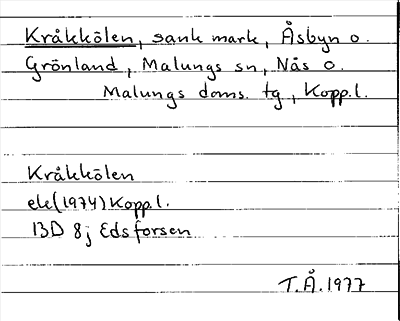 Kråkkölen, sank mark, Åsbyn o.
Grönland, Malungs sn, Nås o.
Malungs doms. tg, Kopp.l.
Kråkkölen
ek(1974)Kopp.l.
13D 8j Edsforsen
T.Å.1977